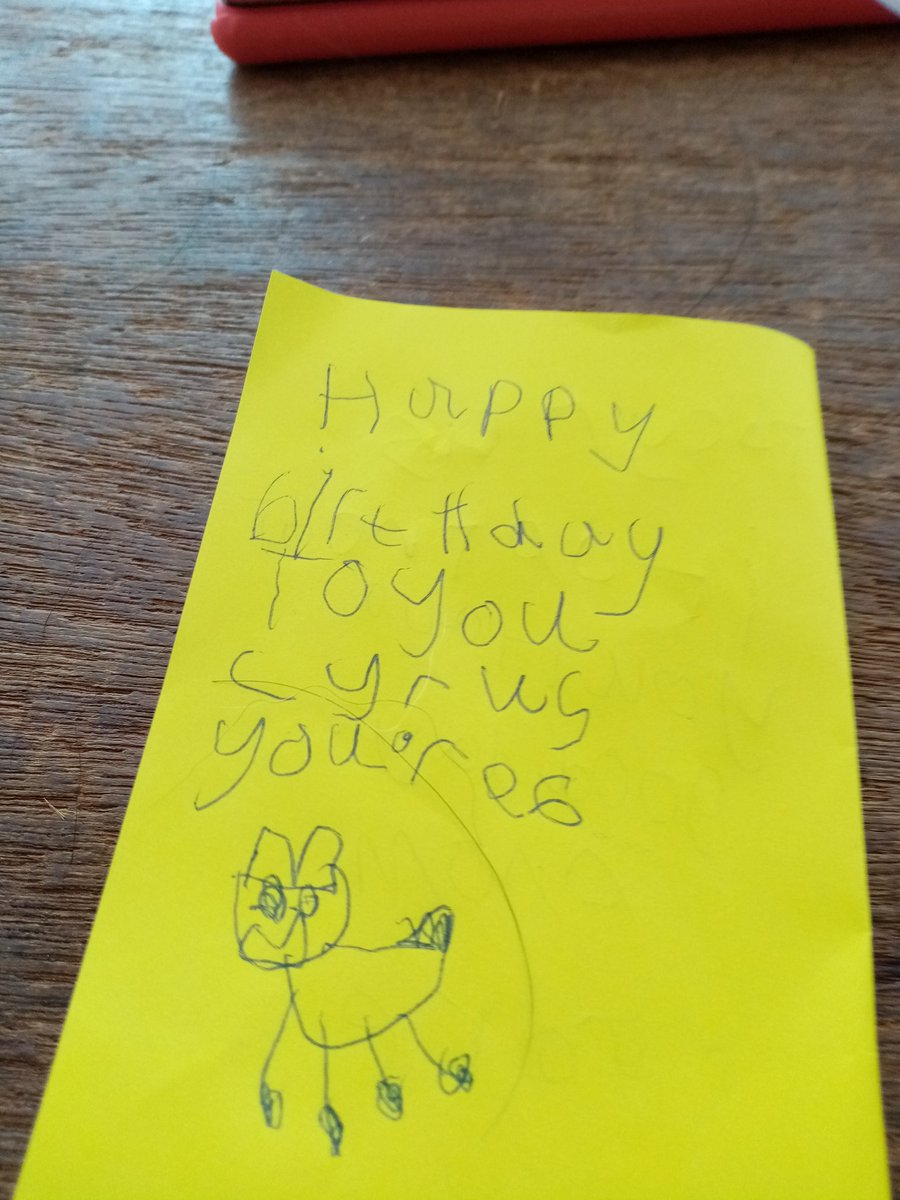 Happy
birthday
To you
cyrus
you're 6